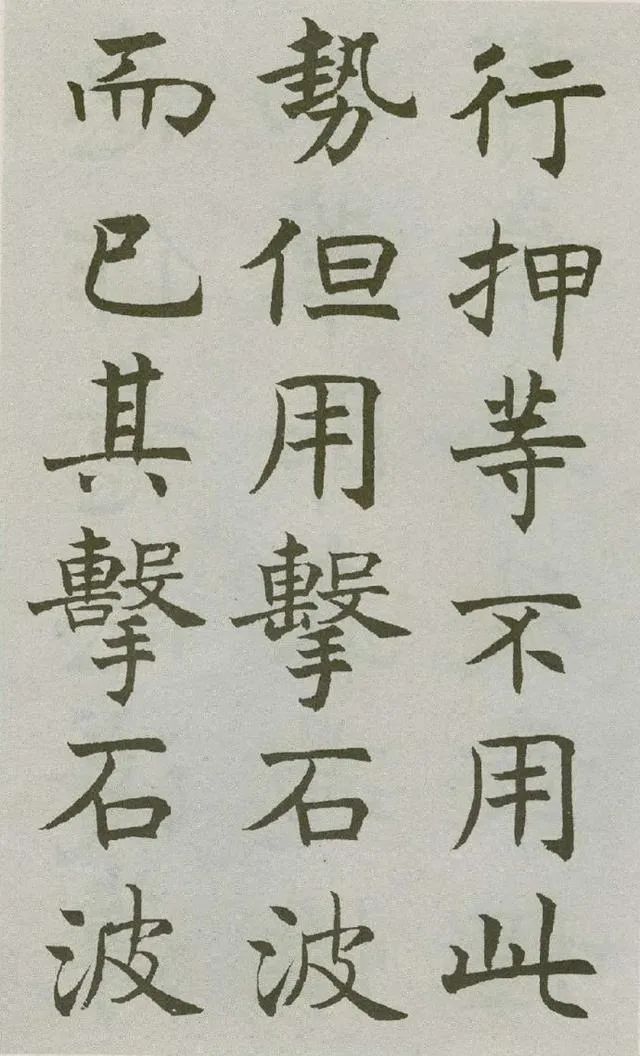 行押等不用此
勢但用擊石波
而已其擊石波